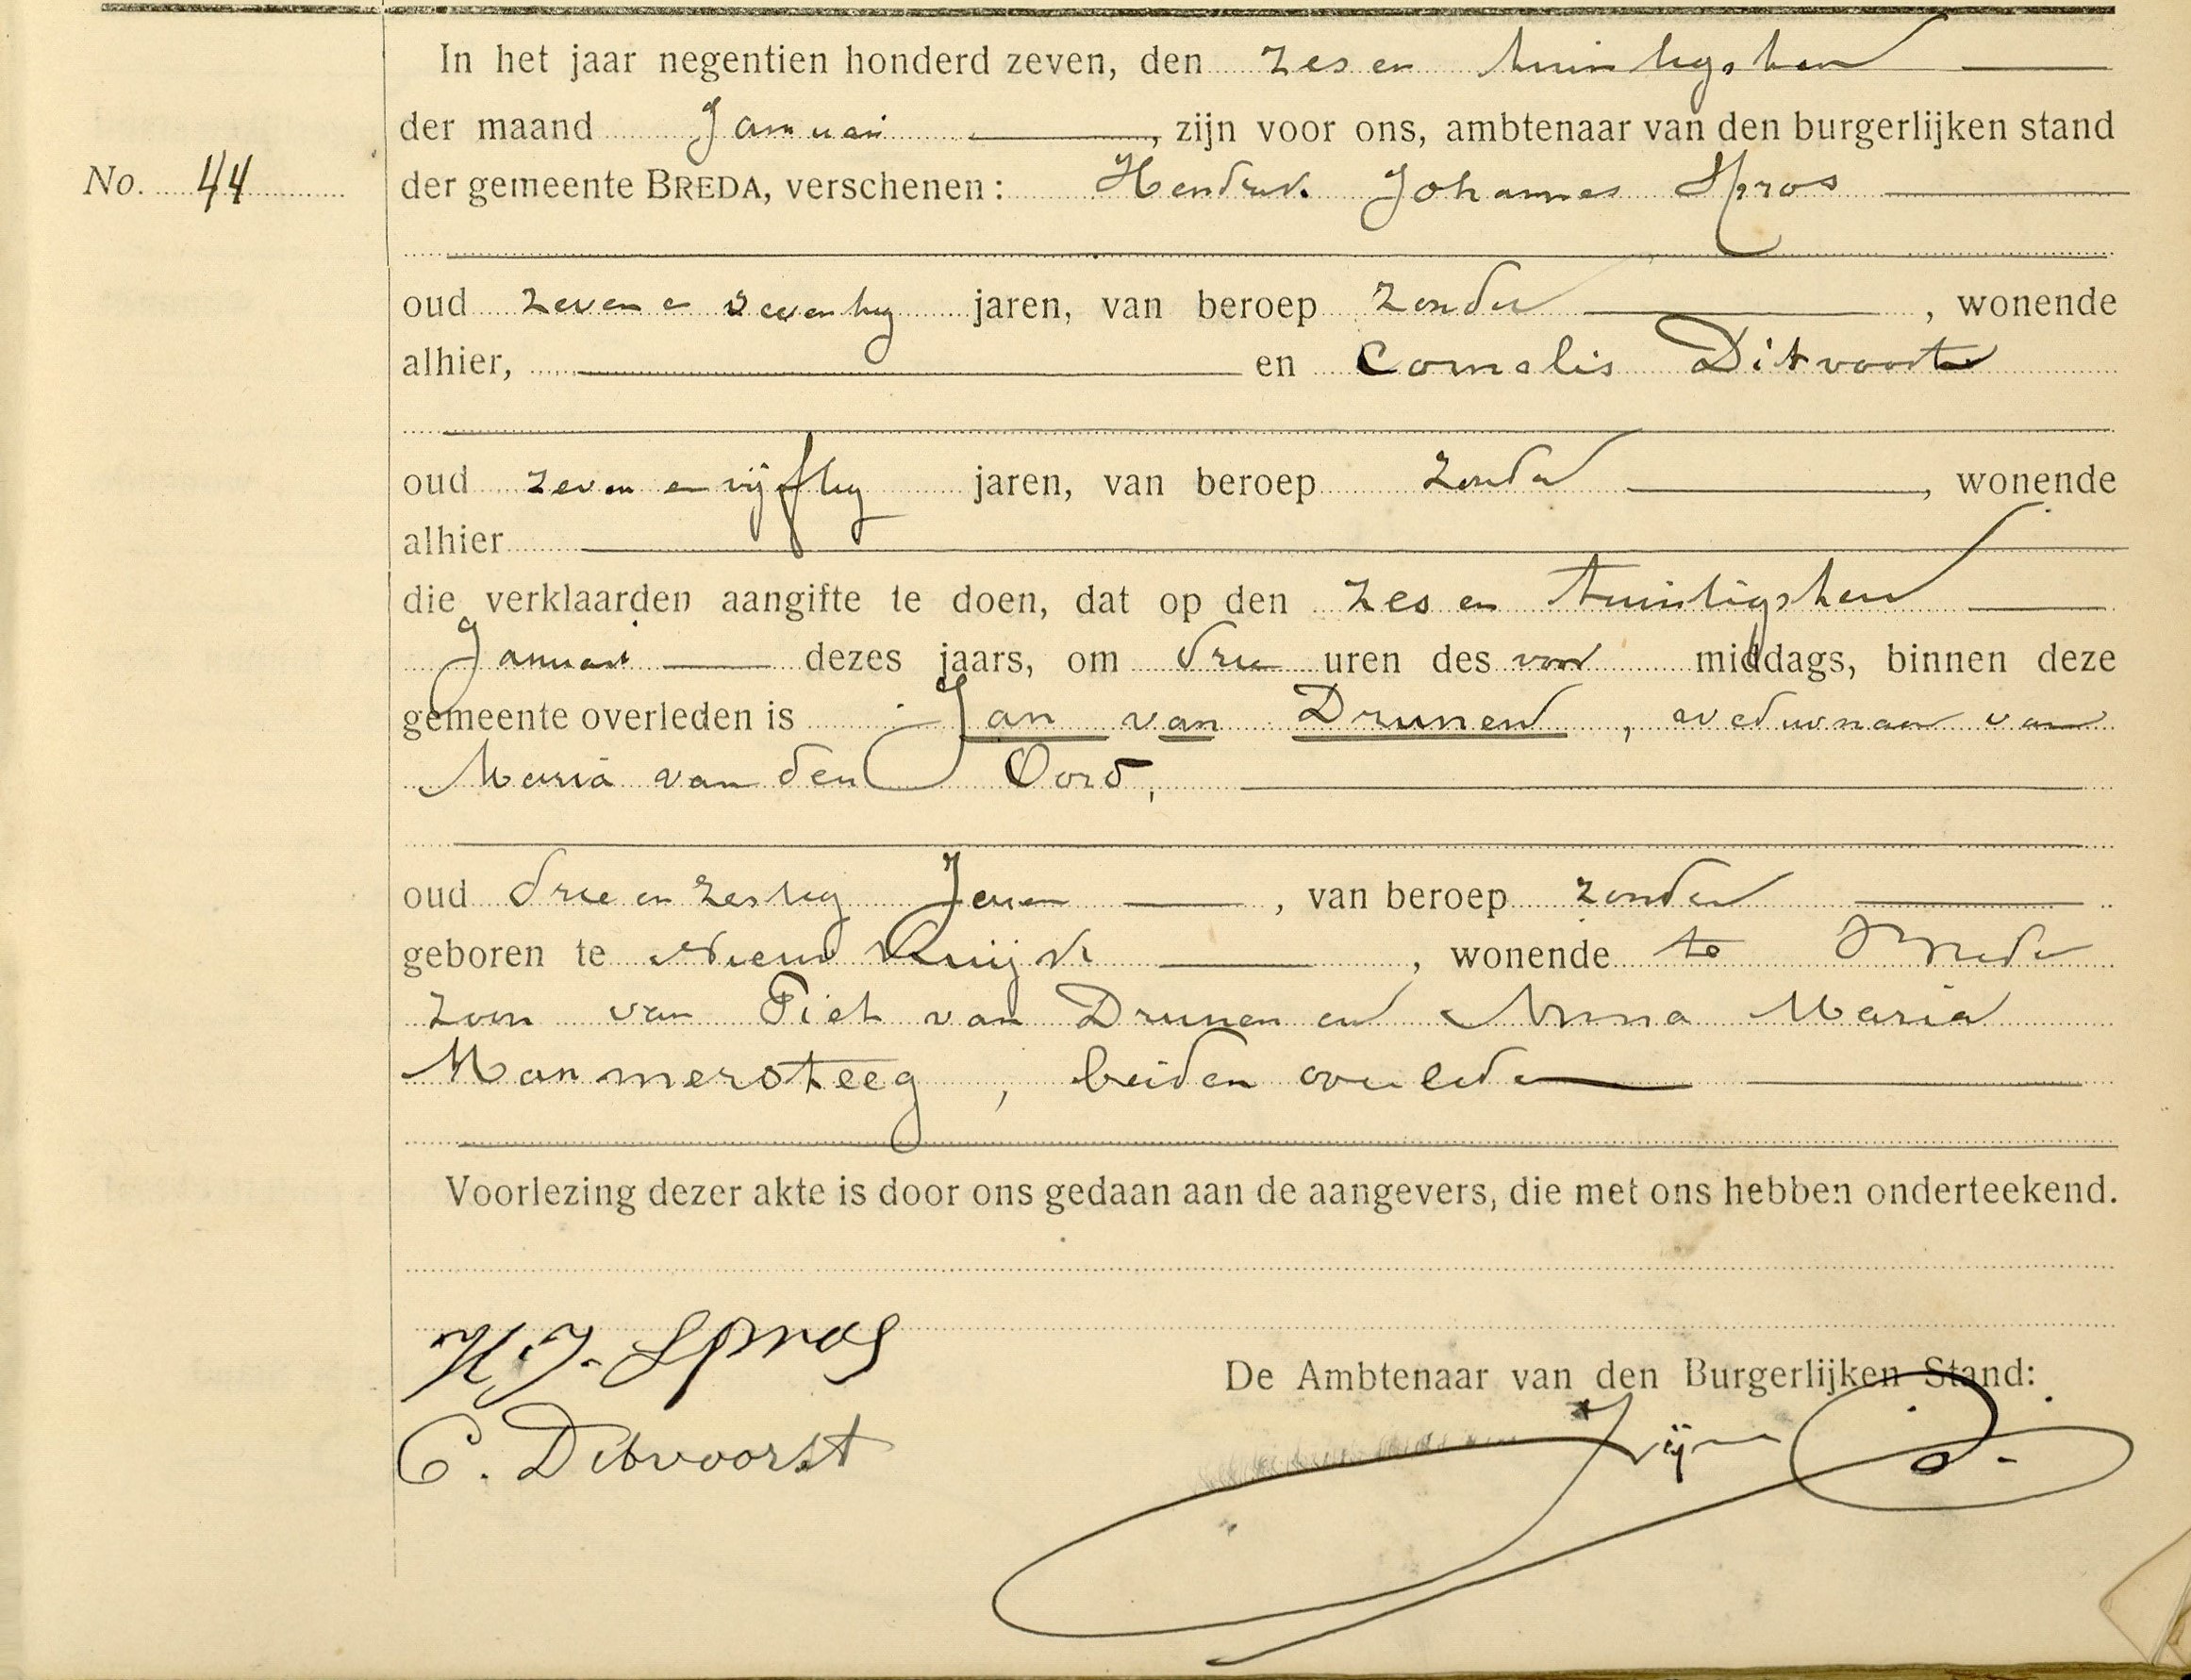 In het jaar negentien honderd zeven, den zes en twintigsten
der maand Januari, zijn voor ons, ambtenaar van den burgerlijken stand
No. 44 der gemeente BREDA, verschenen: Hendrik Johannes Spros
oud zeven en zeventig jaren, van beroep zonder, wonende
alhier, en Cornelis Ditvoorst
oud zeven en vijftig jaren, van beroep zonder, wonende
alhier
die verklaarden aangifte te doen, dat op den zes en twintigsten
Januari dezes jaars, om drie uren des voor middags, binnen deze
gemeente overleden is Jan van Drunen, weduwnaar van
Maria van den Oord,
oud drie en zestig Jaren, van beroep zonder
geboren te Nieuw Kuijk, wonende te Breda
zoon van Piet van Drunen en Anna Maria
Manmersteeg, beiden overleden
Voorlezing dezer akte is door ons gedaan aan de aangevers, die met ons hebben onderteekend.
H. J. Spros
De Ambtenaar van den Burgerlijken Stand:
C. Ditvoorst